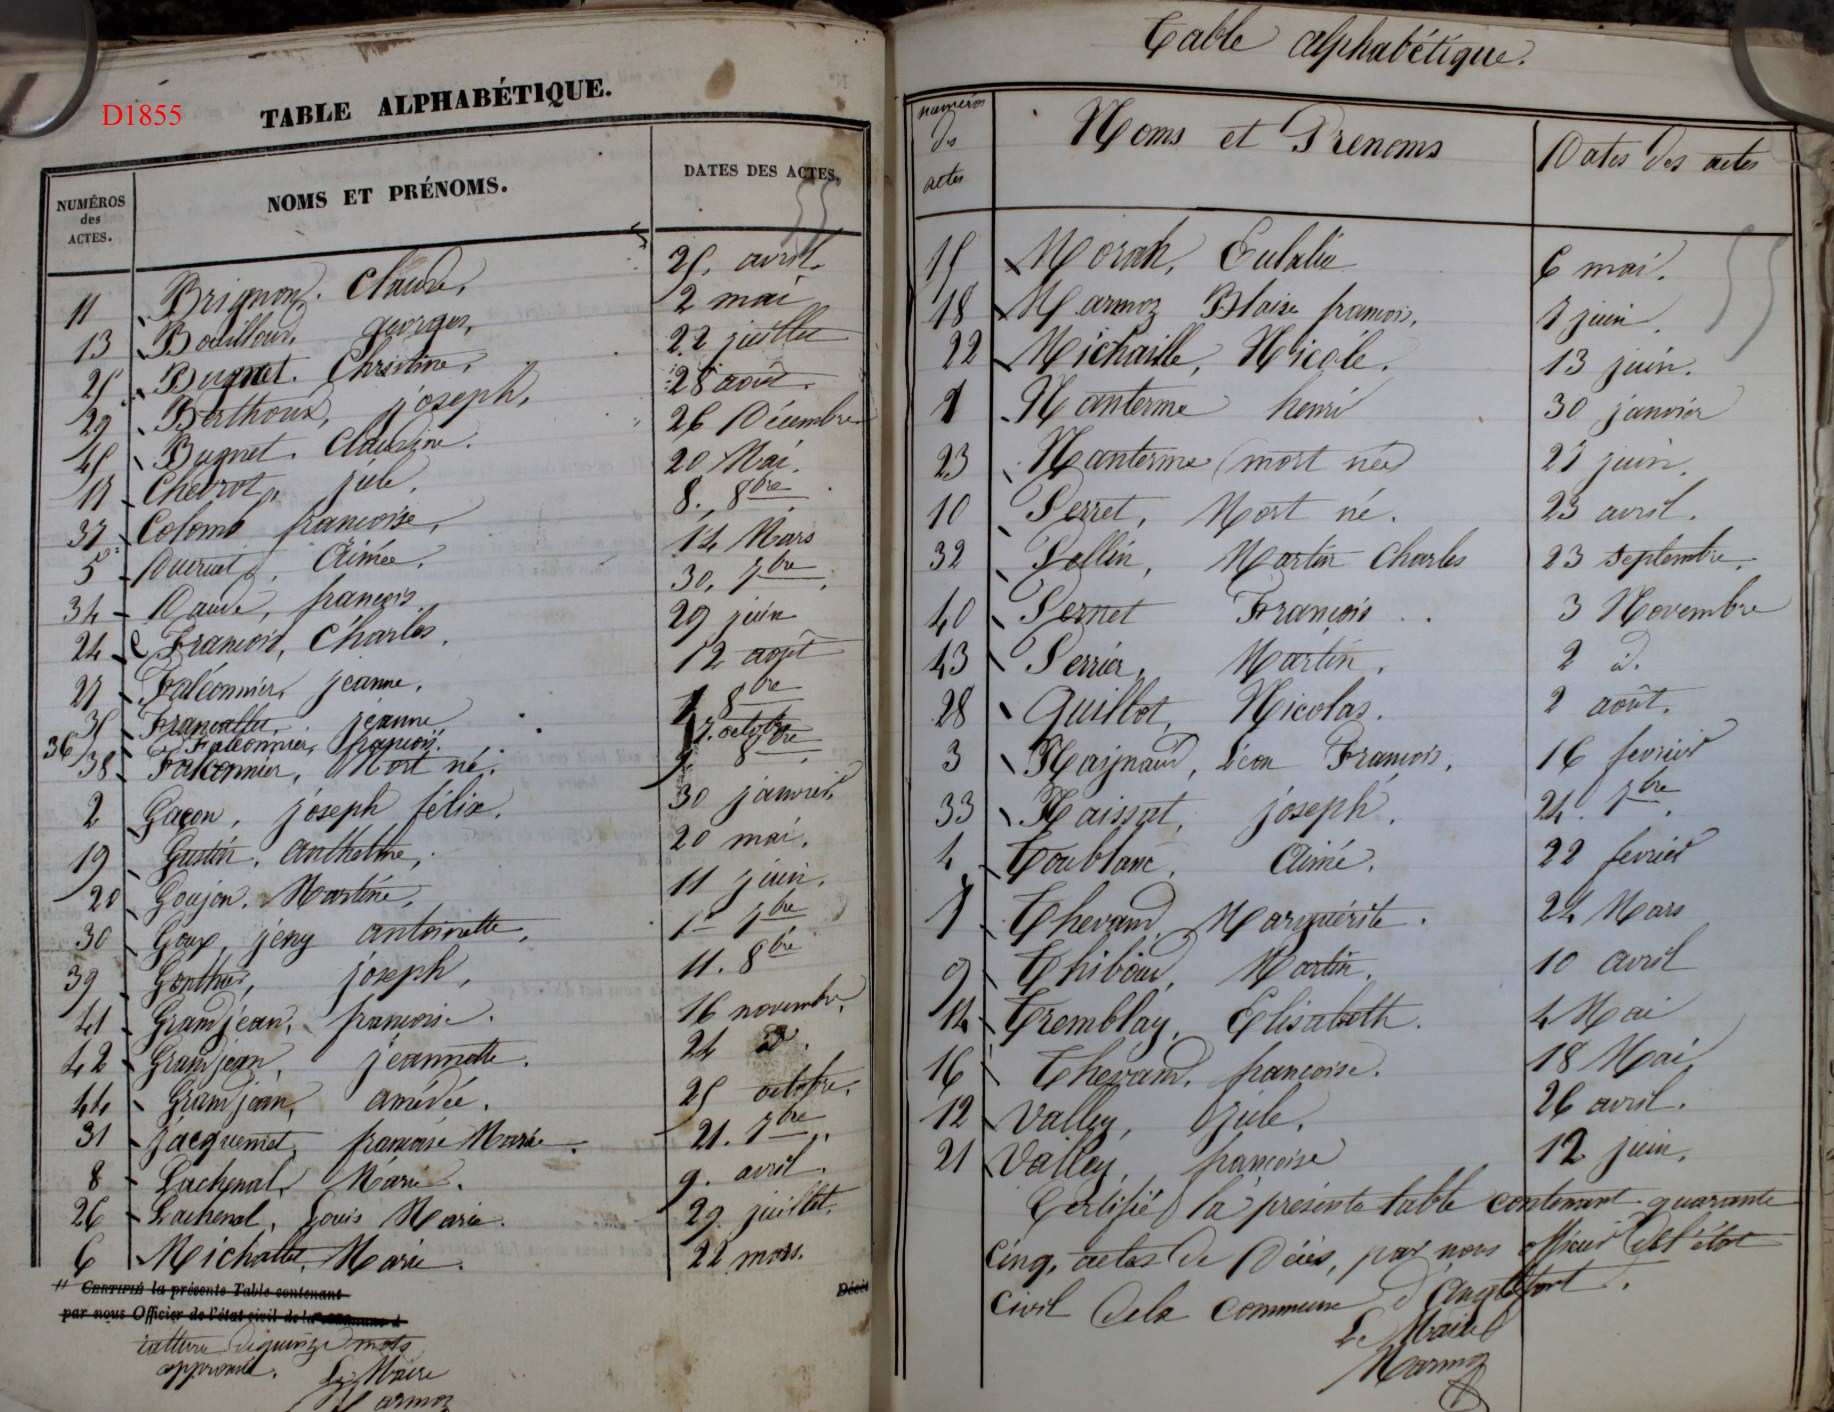 D1855
TABLE ALPHABÉTIQUE.
NUMÉROS des ACTES. NOMS ET PRÉNOMS. DATES DES ACTES.
55
11 Brignon. Claude, 25. avril.
13 Bouilloud, georges, 2 mai
25 Bugnet. Christine, 22 juillet
29 Berthoux, joseph, 28 août.
45 Bugnet. Claudine. 26 Décembre
17 Chevrot, jule. 20 Mai.
37 Colomb françoise, 8. 8bre
5 Aimée. 14 Mars
34 Daude, françois. 30. 7bre
24 François, Charles. 29 juin
27 Falconnier, jeanne. 12 août
35 jeanne 1 8bre
36 Falconnier, françois. 7. octobre
38 Falconnier, Mort né. 8bre
2 Gaçon, joseph félix. 30 janvier
19 Gustin, anthelme, 20 mai.
20 Goujon. Martine, 11 juin.
30 Goux, jeny antoinette, 1er 7bre
39 joseph, 11. 8bre
41 Grandjean, françoise. 16 novembre
42 Grandjean, jeannette. 24 d.
44 Grandjean, amédée. 25 octobre.
31 jacquemet, françoise Marie. 21. 7bre
8 Lachenal, Marie. 9. avril.
26 Lachenal, Louis Marie. 29 juillet.
6 Michallet, Marie. 22 mars.
CERTIFIÉ la présente Table contenant Décès
par nous Officier de l'état civil de la commune d
rature de quinze mots
approuvé. Le Maire
Marmoz
Table alphabétique.
numéros des actes Noms et Prenoms Dates des actes
55
15 Morah, Eulalie 6 mai.
18 Marmoz Blaise françois, 7 juin.
22 Michaille, Nicole. 13 juin.
1 Nanterme henri 30 janvier
23 Nanterme (mort née) 27 juin.
10 Perret, Mort né. 23 avril.
32 Pollin, Martin Charles 23 septembre.
40 Pernet François 3 Novembre
43 Perrier, Martin. 2 d.
28 Quillot, Nicolas. 2 août.
3 Raignaud, Léon François, 16 fevrier
33 Raissat, joseph. 24. 7bre
4 Toublanc, Aimé. 22 fevrier
7 Thevand, Marguérite. 24 Mars
9 Thiboud, Martin. 10 avril
14 Tremblay, Elisabeth. 4 Mai
16 Thevand, françoise. 18 Mai
12 Valley, jule. 26 avril.
21 Valley, françoise 12 juin.
Certifié la présente table contenant quarante
cinq, actes de Décès, par nous officier de l'état
civil dela commune d'anglefort.
Le Maire
Marmoz